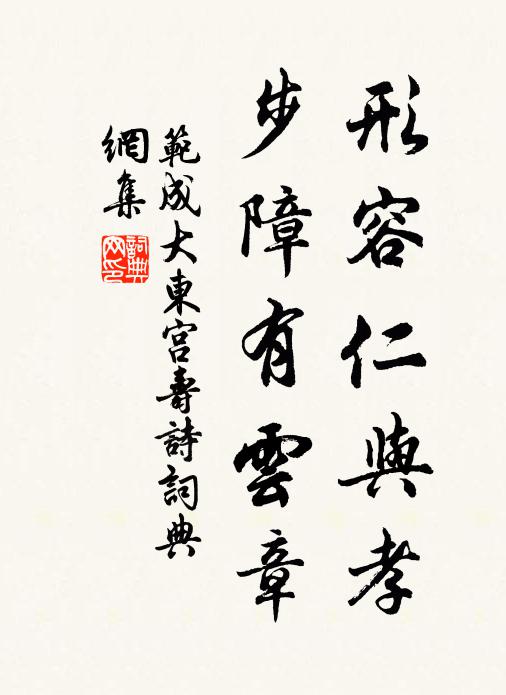 形容仁與孝
步障有雲章
範成大東宮壽詩詞典
網集
詞典
网印